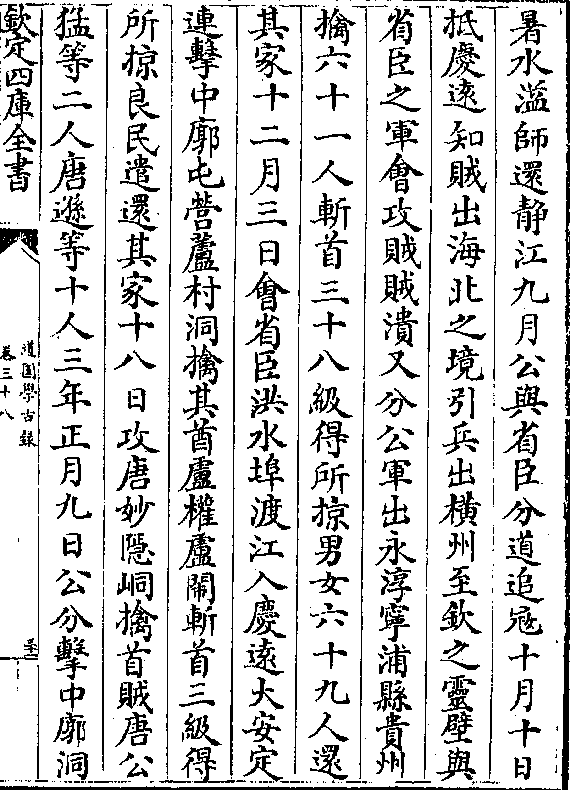 暑水溢師還静江九月公與省臣分道追冦十月十日
抵慶逺知賊出海北之境引兵出横州至欽之靈壁與
省臣之軍會攻賊賊潰又分公軍出永淳寧浦縣貴州
擒六十一人斬首三十八級得所掠男女六十九人還
其家十二月三日會省臣洪水埠渡江入慶逺大安定
連擊中廓屯營蘆村洞擒其酋盧權盧鬧斬首三級得
所掠良民遣還其家十八日攻唐妙隠峒擒首賊唐公
猛等二人唐遜等十人三年正月九日公分擊中廓洞
欽定四庫全書
道園學古録
卷三十八